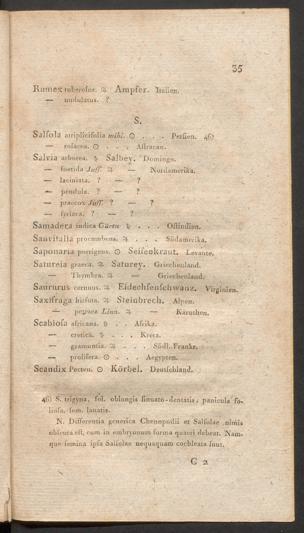 35
Rumex tuberosus. ♃ Ampfer. Italien.
— undulatus. ?
S.
Salsola atriplicifolia mihi. ⊙ . . . Persien. 46)
— rosacea. ⊙ . . . Astracan.
Salvia arborea. ♄ Salbey. Domingo.
— foetida Juss. ♃ — Nordamerika.
— laciniata. ? — ?
— pendula. ? — ?
— praecox Juss. ? — ?
— syriaca. ? — ?
Samadera indica Gärtn. ♄ . . . Ostindien.
Sanvitalia procumbens. . . . Südamerika.
Saponaria porrigens. ⊙ Seifenkraut. Levante.
Satureia graeca. ♃ Saturey. Griechenland.
— Thymbra. ♃ — Griechenland.
Saururus cernuus. ♃ Eidechsenschwanz. Virginien.
Saxifraga hirsuta. ♃ Steinbrech. Alpen.
— petraea Linn. ♃ — Kärnthen.
Scabiosa africana. ♄ . . Afrika.
— cretica. ♄ . . . Kreta.
— gramuntia. ♃ . . . Südl. Frankr.
— prolifera. ⊙ . . . Aegypten.
Scandix Pecten. ⊙ Körbel. Deutschland.
46) S. trigyna, fol. oblongis sinuato-dentatis, panicula fo-
liosa, sem. lanatis.
N. Differentia generica Chenopodii et Salsolae nimis
obscura est, cum in embryonum forma quaeri debeat. Nam-
que semina ipsa Salsolae nequaquam cochleata sunt.
C 2